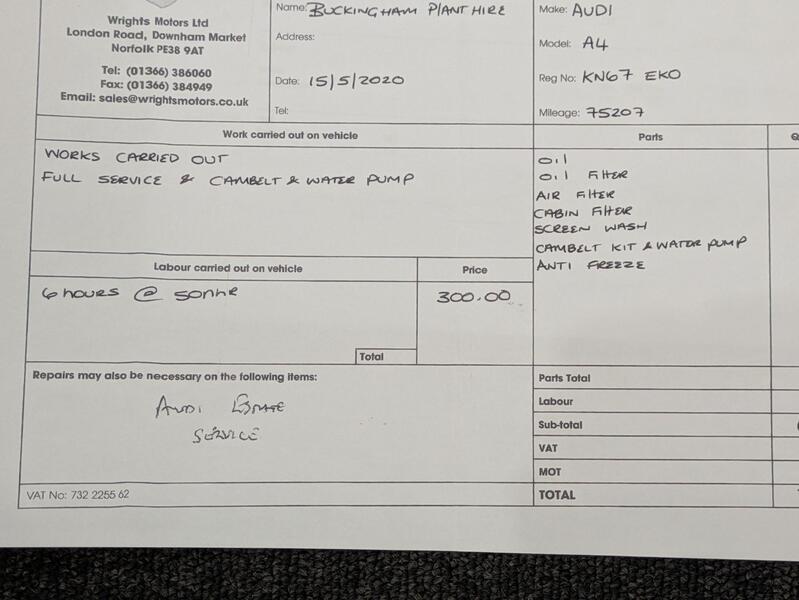 Wrights Motors Ltd
London Road, Downham Market
Norfolk PE38 9AT
Tel: (01366) 386060
Fax: (01366) 384949
Email: sales@wrightsmotors.co.uk
Name: BUCKINGHAM PLANT HIRE
Address:
Date: 15/5/2020
Tel:
Make: AUDI
Model: A4
Reg No: KN67 EKO
Mileage: 75207
Work carried out on vehicle
WORKS CARRIED OUT
FULL SERVICE & CAMBELT & WATER PUMP
Parts
Q
OIL
OIL FILTER
AIR FILTER
CABIN FILTER
SCREEN WASH
CAMBELT KIT & WATER PUMP
ANTI FREEZE
Labour carried out on vehicle
Price
6 hours @ 50HR
300.00
Total
Repairs may also be necessary on the following items:
AUDI ESTATE
SERVICE
Parts Total
Labour
Sub-total
VAT
MOT
TOTAL
VAT No: 732 2255 62